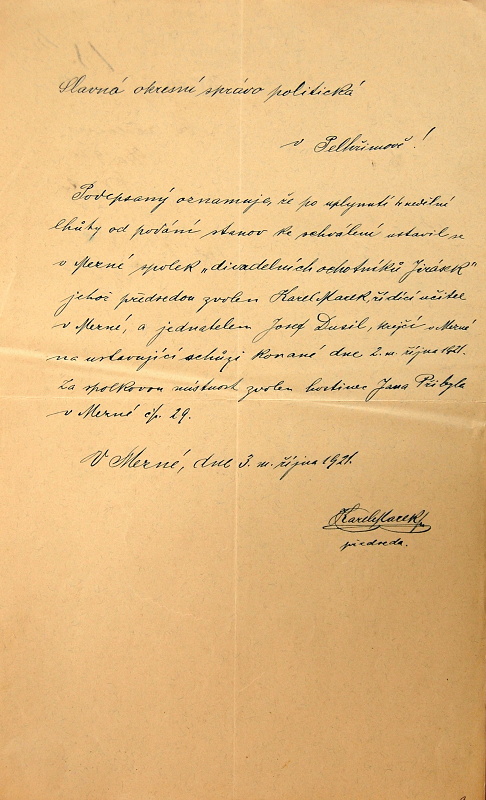 Slavná okresní správo politická
v Pelhřimově!
Podepsaný oznamuje, že po uplynutí 4 nedělní
lhůty od podání stanov ke schválení ustavil se
v Merné spolek „divadelních ochotníků Jirásek"
jehož předsedou zvolen Karel Marek, řídící učitel
v Merné, a jednatelem Josef Dusil, krejčí v Merné
na ustavující schůzi konané dne 2. m. října 1921.
Za spolkovou místnost zvolen hostinec Jana Přibyla
v Merné čp. 29.
V Merné, dne 3. m. října 1921.
Karel Marek
předseda.